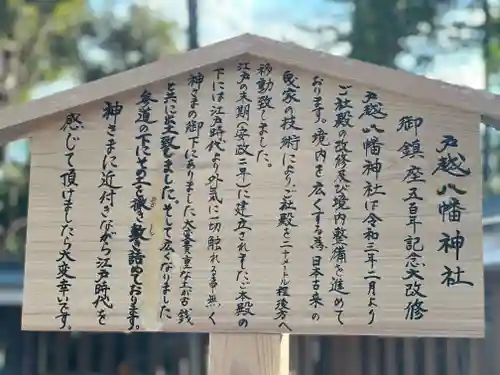 戸越八幡神社
御鎮座五百年記念大改修
戸越八幡神社は令和三年二月より
ご社殿の改修及び境内整備を進めて
おります。境内を広くする為、日本古来の
曳家の技術によりご社殿を二十メートル程後方へ
移動致しました。
江戸の末期(安政二年)に建立されましたご本殿の
下には江戸時代より外気に一切触れる事無く
神さまの御下にありました大変貴重な土が古銭
と共に出て参りました。そして広くなりました
参道の下にその土を敷き詰めております。
神さまに近付きながら江戸時代を
感じて頂けましたら大変幸いです。